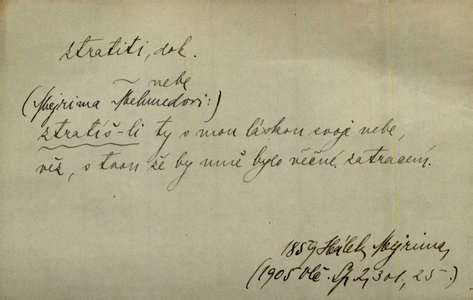 ztratiti, dok.
~ nebe
(Mejrima Mehmedovi:)
ztratíš-li ty s mou láskou svoje nebe,
věz, s tvou že by mně bylo věčné zatracení.
1859 Hálek, Mejrima,
(1905 Ott. Sp. 2, 301, 25.)